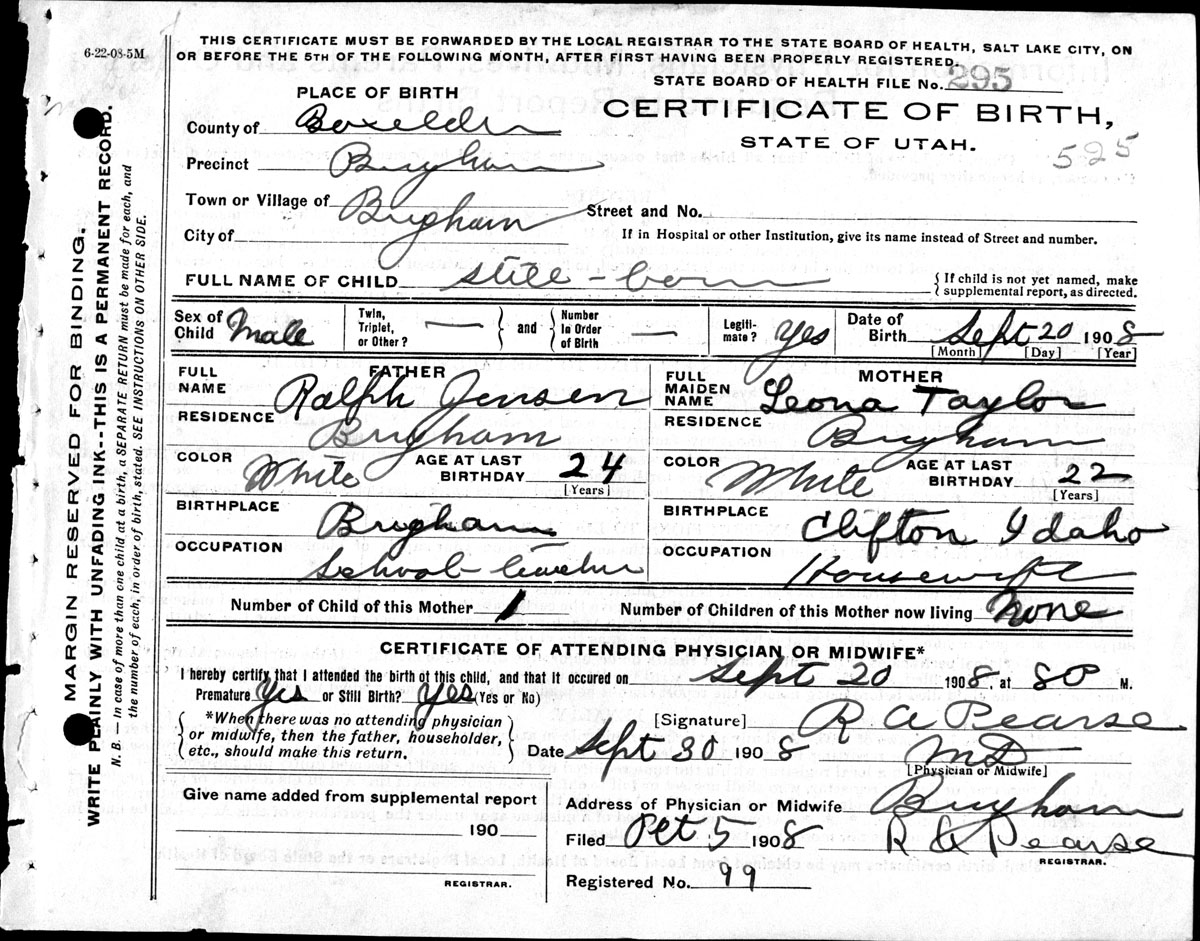 6-22-08-5M
THIS CERTIFICATE MUST BE FORWARDED BY THE LOCAL REGISTRAR TO THE STATE BOARD OF HEALTH, SALT LAKE CITY, ON
OR BEFORE THE 5TH OF THE FOLLOWING MONTH, AFTER FIRST HAVING BEEN PROPERLY REGISTERED.
STATE BOARD OF HEALTH FILE No. 295
PLACE OF BIRTH
CERTIFICATE OF BIRTH,
STATE OF UTAH.
525
County of Boxelder
Precinct Brigham
Town or Village of Brigham Street and No.
City of If in Hospital or other Institution, give its name instead of Street and number.
FULL NAME OF CHILD still-born { If child is not yet named, make supplemental report, as directed.
Sex of Child Male Twin, Triplet, or Other? — } and { Number In Order of Birth — Legiti-mate? Yes Date of Birth Sept 20 1908
[Month] [Day] [Year]
FATHER MOTHER
FULL NAME Ralph Jensen FULL MAIDEN NAME Leona Taylor
RESIDENCE Brigham RESIDENCE Brigham
COLOR White AGE AT LAST BIRTHDAY 24 [Years] COLOR White AGE AT LAST BIRTHDAY 22 [Years]
BIRTHPLACE Brigham BIRTHPLACE Clifton Idaho
OCCUPATION School-teacher OCCUPATION Housewife
Number of Child of this Mother 1 Number of Children of this Mother now living None
CERTIFICATE OF ATTENDING PHYSICIAN OR MIDWIFE*
I hereby certify that I attended the birth of this child, and that it occured on Sept 20 1908, at 80 M.
Premature Yes or Still Birth? Yes (Yes or No)
{ *When there was no attending physician or midwife, then the father, householder, etc., should make this return. }
[Signature] R A Pearse
Date Sept 30 1908 MD
[Physician or Midwife]
Give name added from supplemental report
190
REGISTRAR.
Address of Physician or Midwife Brigham
Filed Oct 5 1908 R A Pearse
REGISTRAR.
Registered No. 99
MARGIN RESERVED FOR BINDING.
WRITE PLAINLY WITH UNFADING INK--THIS IS A PERMANENT RECORD.
N. B. — In case of more than one child at a birth, a SEPARATE RETURN must be made for each, and
the number of each, in order of birth, stated. SEE INSTRUCTIONS ON OTHER SIDE.